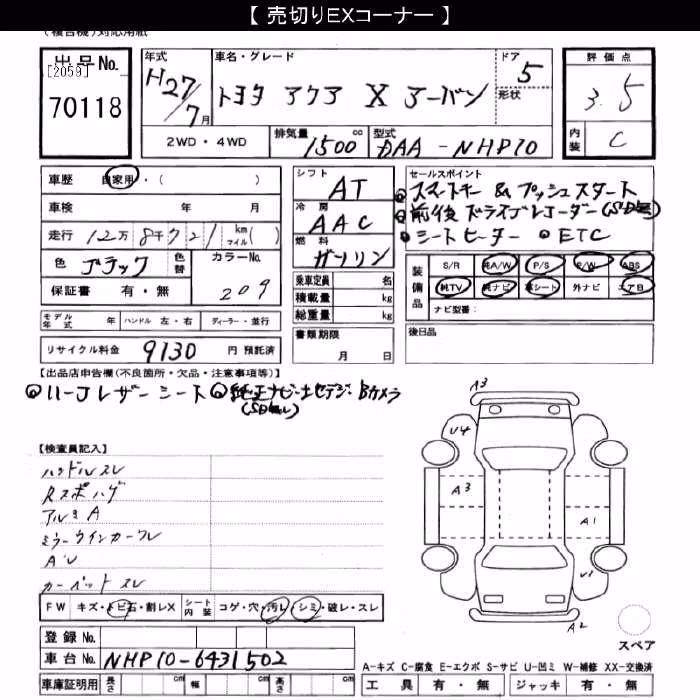 【 売切りEXコーナー 】
(複合機)対応用紙
出品No.
[2059]
70118
年式 H27/7月
車名・グレード トヨタ アクア X アーバン
ドア 5
形状
評価点 3.5
内装 C
2WD・4WD 排気量 1500 cc 型式 DAA-NHP10
車歴 自家用・( )
車検 年 月
走行 12万8千721 km マイル( )
色 ブラック 色替 カラーNo. 209
保証書 有・無
シフト AT
冷房 AAC
燃料 ガソリン
乗車定員 名
積載量 kg
総重量 kg
書類期限 月 日
セールスポイント
スマートキー & プッシュスタート
前後ドライブレコーダー(SD無)
シートヒーター ETC
装備品 S/R 純A/W P/S P/W ABS
純TV 純ナビ 革シート 外ナビ エアB
ナビ型番:
後日品
モデル年式 年 ハンドル 左・右 ディーラー・並行
リサイクル料金 9130 円 預託済
【出品店申告欄(不良箇所・欠品・注意事項等)】
ハーフレザーシート 純正ナビ・地デジ・Bカメラ
(SD無し)
【検査員記入】
ハンドルスレ
Rスポハゲ
アルミA
ミラーウインカーワレ
A・U
カーペットスレ
FW キズ・トビ石・割レX シート内装 コゲ・穴・汚レ・シミ・破レ・スレ
登録No.
車台No. NHP10-6431502
車庫証明用 長さ cm 幅 cm 高さ cm
A3
U4
A3
A1
U3
A2
スペア
A-キズ C-腐食 E-エクボ S-サビ U-凹ミ W-補修 XX-交換済
工具 有・無 ジャッキ 有・無